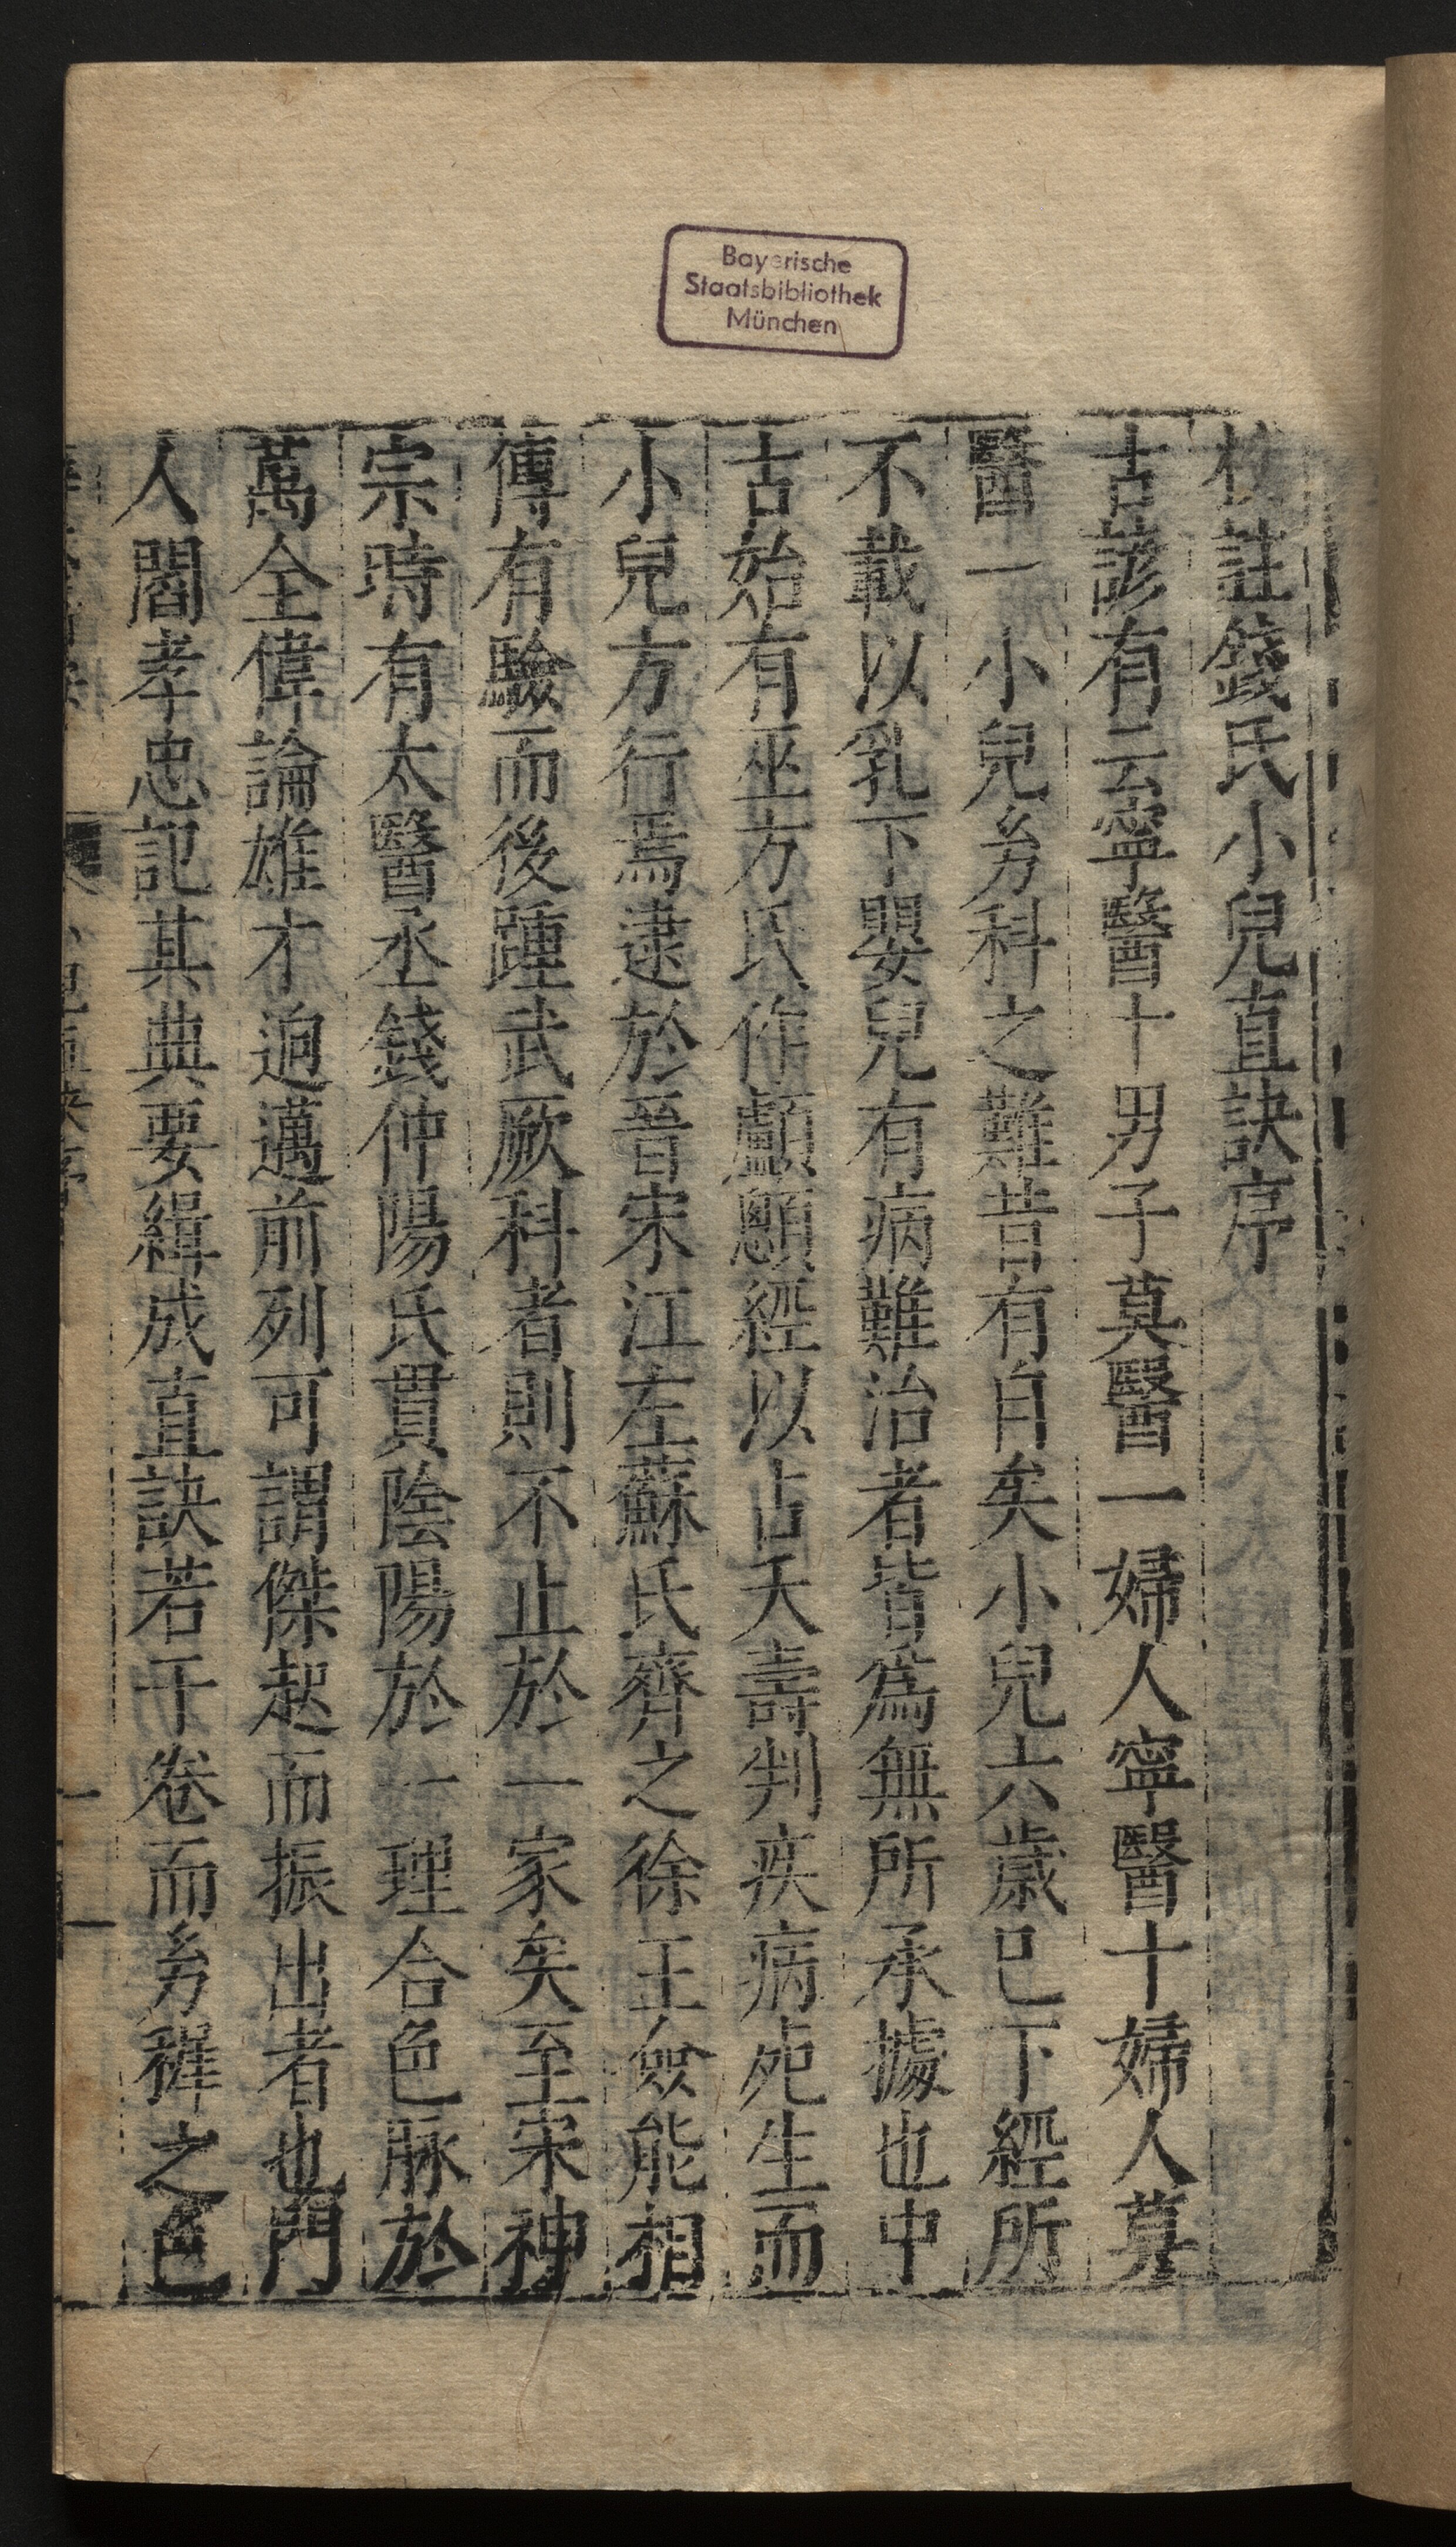 Bayerische
Staatsbibliothek
München
校註錢氏小兒直訣序
古諺有云寧醫十男子莫醫一婦人寧醫十婦人莫
醫一小兒㓜科之難昔有自矣小兒六歲巳下經所
不載以乳下嬰兒有病難治者皆爲無所承據也中
古始有巫方氏作顱顖經以占夭壽判疾病死生而
小兒方行焉逮於晉宋江左蘇氏齊之徐王僉能相
傳有驗而後踵武厥科者則不止於一家矣至宋神
宗時有太醫丞錢仲陽氏貫陰陽於一理合色脉於
萬全偉論雄才逈邁前列可謂傑起而振出者也門
人閻孝忠記其典要緝成直訣若干卷而㓜稺之色
小兒直訣序
一